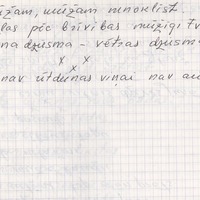 ūžam, mūžam nenoklist.
las pēc brīvības mūžīgi tv
na dzusma - vētras dzusm
x x
x
nav ūtdenas viņai nav au